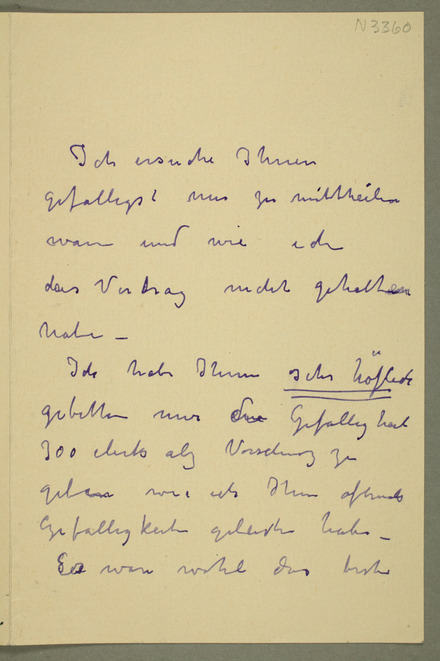 N3360
Ich ersuche Ihnen
gefälligst mir zu mittheilen
wann und wie ich
das Vertrag nicht gehalten
habe –
Ich habe Ihnen sehr höflich
gebetten mir die Gefälligkeit
300 Mark als Vorschuss zu
geben wie ich Ihnen oftmals
Gefälligkeiten geleistet habe –
Es war wohl das beste